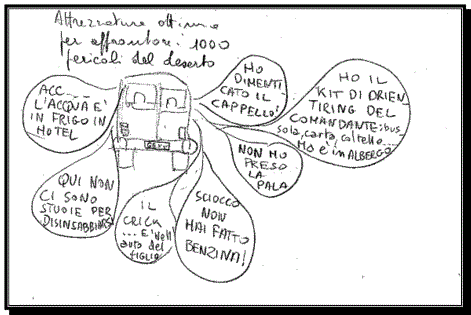 Attrezzature ottime
per affrontare i 1000
pericoli del deserto
ACC....
L'ACQUA E'
IN FRIGO IN
HOTEL
HO
DIMENTI
CATO IL
CAPPELLO!
HO IL
KIT DI ORIEN
TIRING DEL
COMANDANTE: bus
sola, carta, coltello...
MA E' IN ALBERGO
NON HO
PRESO
LA
PALA
QUI NON
CI SONO
STUOIE PER
DISINSABBIARSI
IL
CRICK
... E' nell'
auto del
figlio
SCIOCCO
NON
HAI FATTO
BENZINA!